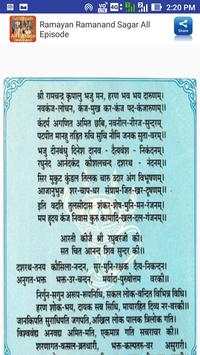 2:20 PM
Ramayan Ramanand Sagar All
Episode
Share
श्री रामचन्द्र कृपालु भजु मन, हरण भव भय दारुणम्।
नवकंज-लोचन, कंज-मुख कर-कंज पद-कंजारुणम्।।
कंदर्प अगणित अमित छबि, नवनील-नीरद-सुन्दरम्।
पटपीत मानहु तड़ित रुचि शुचि नौमि जनक सुता-वरम्।।
भजु दीनबंधु दिनेश दानव - दैत्यवंश - निकंदनम्।
रघुनंद आनंदकंद कौशलचन्द दशरथ - नंदनम्।।
सिर मुकुट कुंडल तिलक चारु उदार अंग विभूषणम्।
आजानुभुज शर-चाप-धर संग्राम-जित-खर-दूषणम्।।
इति वदति तुलसीदास शंकर-शेष-मुनि-मन-रंजनम्।
मम हृदय कंज निवास कुरु कामादि-खल-दल-गंजनम्।।
आरती कीजै श्री रघुवरजी की।
सत चित आनन्द शिव सुन्दर की।।
दशरथ-तनय कौसिला-नन्दन, सुर-मुनि-रक्षक दैत्य-निकन्दन।
अनुगत-भक्त भक्त-उर-चन्दन, मर्यादा-पुरुषोत्तम वरकी।।
निर्गुन-सगुन अरूप-रूपनिधि, सकल लोक-वन्दित विभिन्न विधि।
हरण शोक-भय, दायक सब सिधि, मायारहित दिव्य नर-वरकी।।
जानकिपति सुराधिपति जगपति, अखिल लोक पालक त्रिलोक-गति।
विश्ववंद्य अनवद्य अमित-मति, एकमात्र गति सचराचर की।।
शरणागत-वत्सल-व्रतधारी, भक्त-कल्पतरु-वर असुरारी।